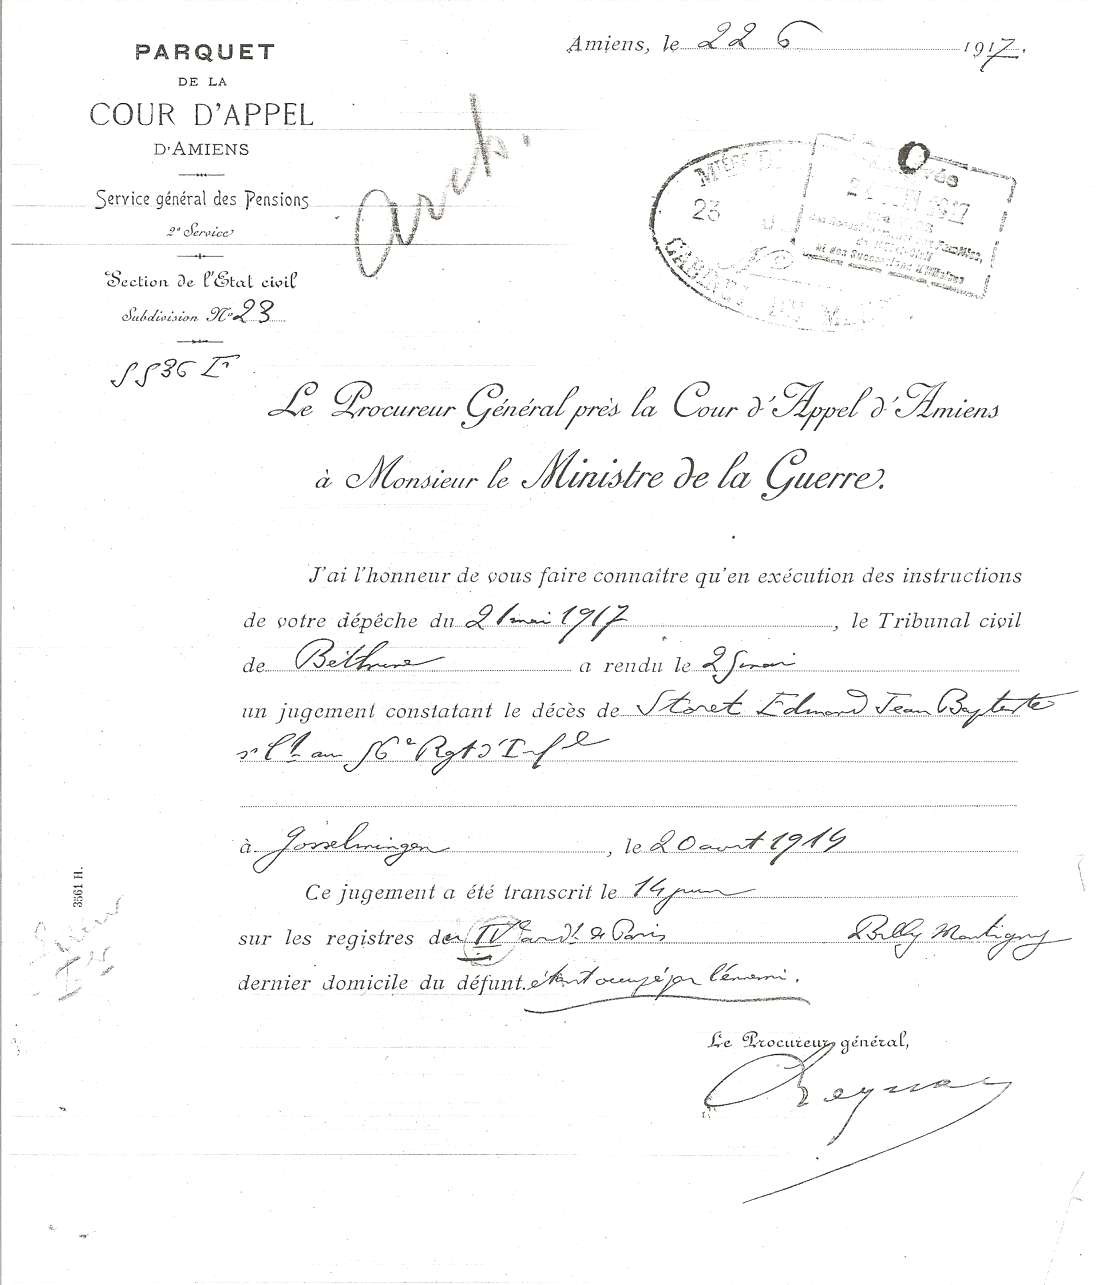 PARQUET
DE LA
COUR D'APPEL
D'AMIENS
Service général des Pensions
2e Service
Section de l'État civil
Subdivision No 23
5536 F
Amiens, le 22 6 1917.
arch.
23
CABINET DU
24 JUIN 1917
Le Procureur Général près la Cour d'Appel d'Amiens
à Monsieur le Ministre de la Guerre.
J'ai l'honneur de vous faire connaître qu'en exécution des instructions
de votre dépêche du 21 mai 1917, le Tribunal civil
de Béthune a rendu le 25 mai
un jugement constatant le décès de Storet Edmond Jean Baptiste
s/ Lt au 56e Rgt d'Inf
à Gosselmingen, le 20 aout 1914
Ce jugement a été transcrit le 14 juin
sur les registres du IVe ardt de Paris Billy Montigny
dernier domicile du défunt. étant occupé par l'ennemi.
Le Procureur général,
3561 H.